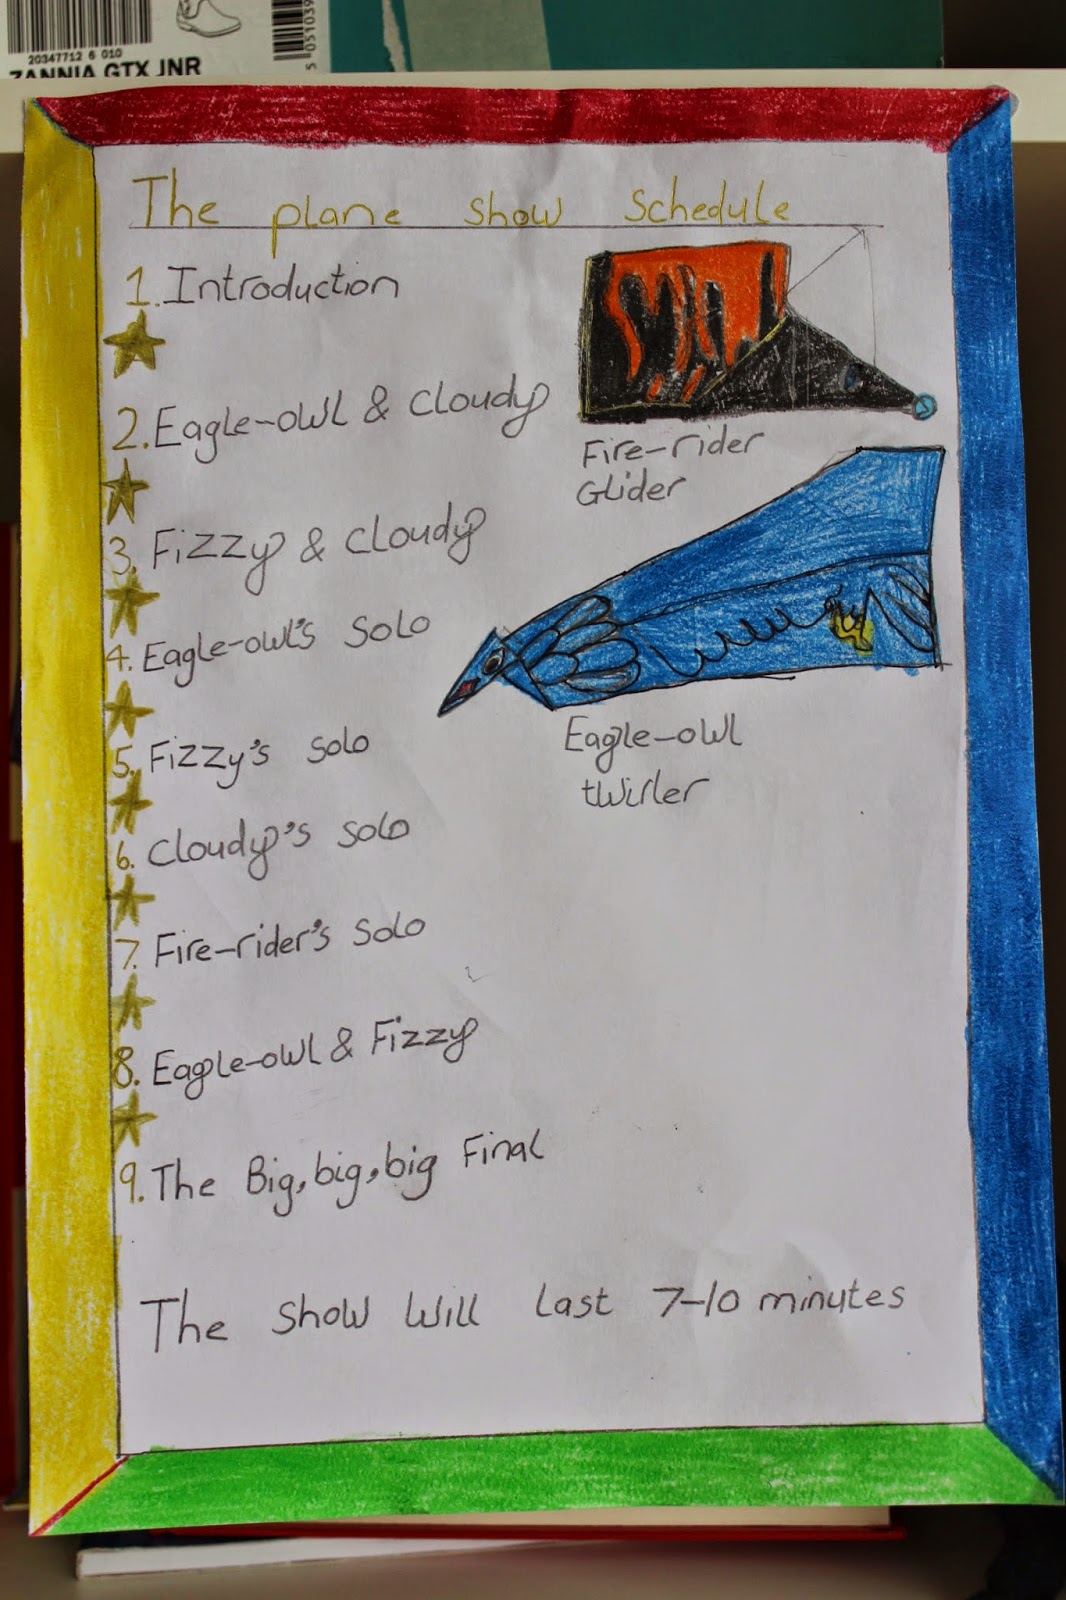 20347712 6 010
ZANNIA GTX JNR
5 051039
The plane show schedule
1. Introduction
2. Eagle-owl & cloudy
Fire-rider
Glider
3. Fizzy & cloudy
4. Eagle-owl's solo
Eagle-owl
twirler
5. Fizzy's solo
6. Cloudy's solo
7. Fire-rider's solo
8. Eagle-owl & Fizzy
9. The Big, big, big Final
The show will last 7-10 minutes